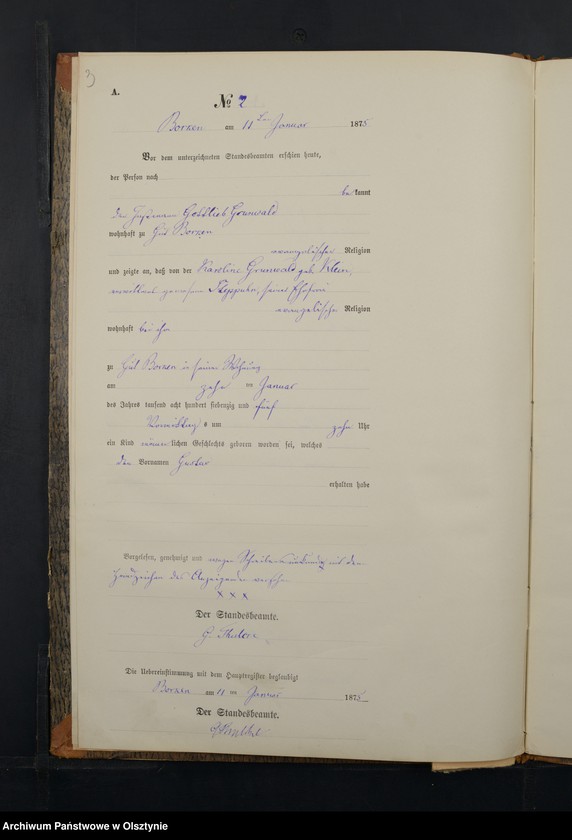 3
A.
№ 2
Borken am 11ten Januar 1875
Vor dem unterzeichneten Standesbeamten erschien heute,
der Person nach
bekannt
der Instmann Gottlieb Grunwald
wohnhaft zu Gut Borken
evangelischer Religion
und zeigte an, daß von der Karoline Grunwald geb. Klein,
seiner Ehefrau
evangelischer Religion
wohnhaft bei ihm
zu Gut Borken in seiner Wohnung
am zehn ten Januar
des Jahres tausend acht hundert siebenzig und fünf
Vormittags um zehn Uhr
ein Kind männlichen Geschlechts geboren worden sei, welches
den Vornamen Gustav
erhalten habe
Vorgelesen, genehmigt und wegen Schreibensunkunde mit dem
Handzeichen des Anzeigenden versehen
x x x
Der Standesbeamte.
Die Uebereinstimmung mit dem Hauptregister beglaubigt
Borken am 11 ten Januar 1875
Der Standesbeamte.
Archiwum Państwowe w Olsztynie